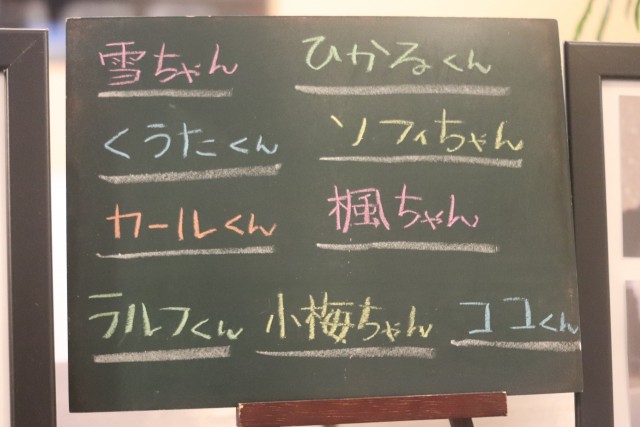 雪ちゃん ひかるくん
くうたくん ソフィちゃん
カールくん 楓ちゃん
ラルフくん 小梅ちゃん ココくん